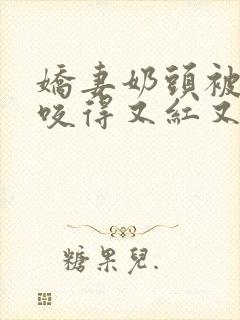 嬌妻奶頭被
咬得又紅又
糖果兒.